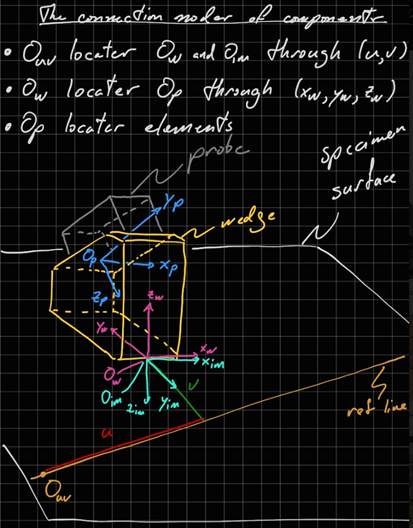 The connection nodes of components
• Ouv locater Ow and Oim through (u,v)
• Ow locater Op through (xw, yw, zw)
• Op locater elements
probe
specimen
surface
yp
wedge
Op
xp
zp
zw
yw
xw
Ow
xim
Oim
zim
yim
v
u
ref line
Ouv